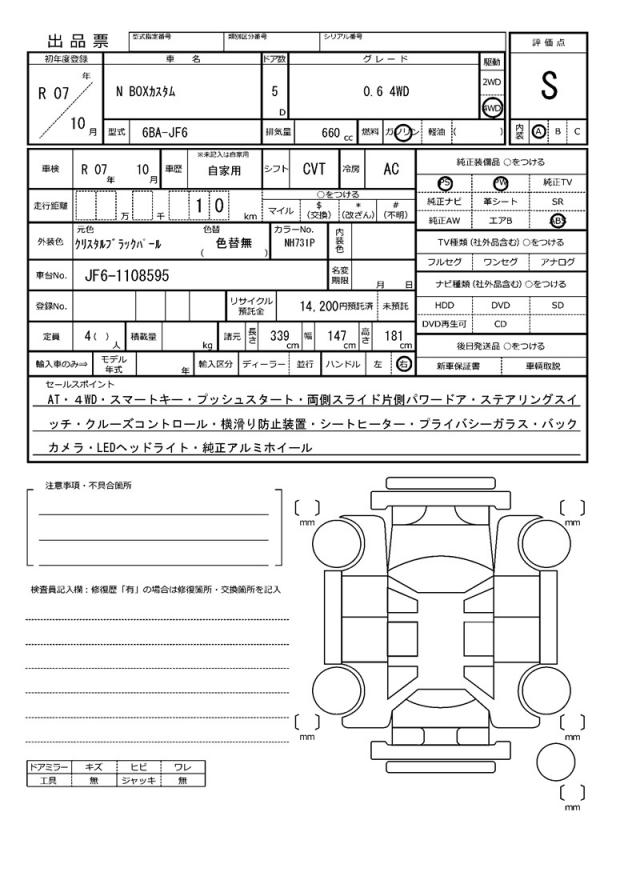 出品票 型式指定番号 類別区分番号 シリアル番号 評価点
初年度登録 車名 ドア数 グレード 駆動
R 07 年 10 月 N BOXカスタム 5 D 0.6 4WD 2WD 4WD S
型式 6BA-JF6 排気量 660 cc 燃料 ガソリン 軽油 ( ) 内装 A B C
車検 R 07 年 10 月 車歴 ※未記入は自家用 自家用 シフト CVT 冷房 AC 純正装備品 ○をつける
PS PW 純正TV
走行距離 万 千 1 0 km ○をつける マイル $ (交換) * (改ざん) # (不明) 純正ナビ 革シート SR
純正AW エアB ABS
外装色 元色 クリスタルブラックパール 色替 ( 色替無 ) カラーNo. NH731P 内装色 TV種類 (社外品含む) ○をつける
フルセグ ワンセグ アナログ
車台No. JF6-1108595 名変期限 月 日 ナビ種類 (社外品含む) ○をつける
登録No. リサイクル預託金 14,200円預託済 未預託 HDD DVD SD
DVD再生可 CD
定員 4 ( ) 人 積載量 kg 諸元 長さ 339 cm 幅 147 cm 高さ 181 cm 後日発送品 ○をつける
輸入車のみ⇒ モデル年式 年 輸入区分 ディーラー 並行 ハンドル 左 右 新車保証書 車輌取説
セールスポイント
AT・4WD・スマートキー・プッシュスタート・両側スライド片側パワードア・ステアリングスイ
ッチ・クルーズコントロール・横滑り防止装置・シートヒーター・プライバシーガラス・バック
カメラ・LEDヘッドライト・純正アルミホイール
注意事項・不具合箇所
mm mm
検査員記入欄：修復歴「有」の場合は修復箇所・交換箇所を記入
mm mm
ドアミラー キズ ヒビ ワレ
工具 無 ジャッキ 無
mm